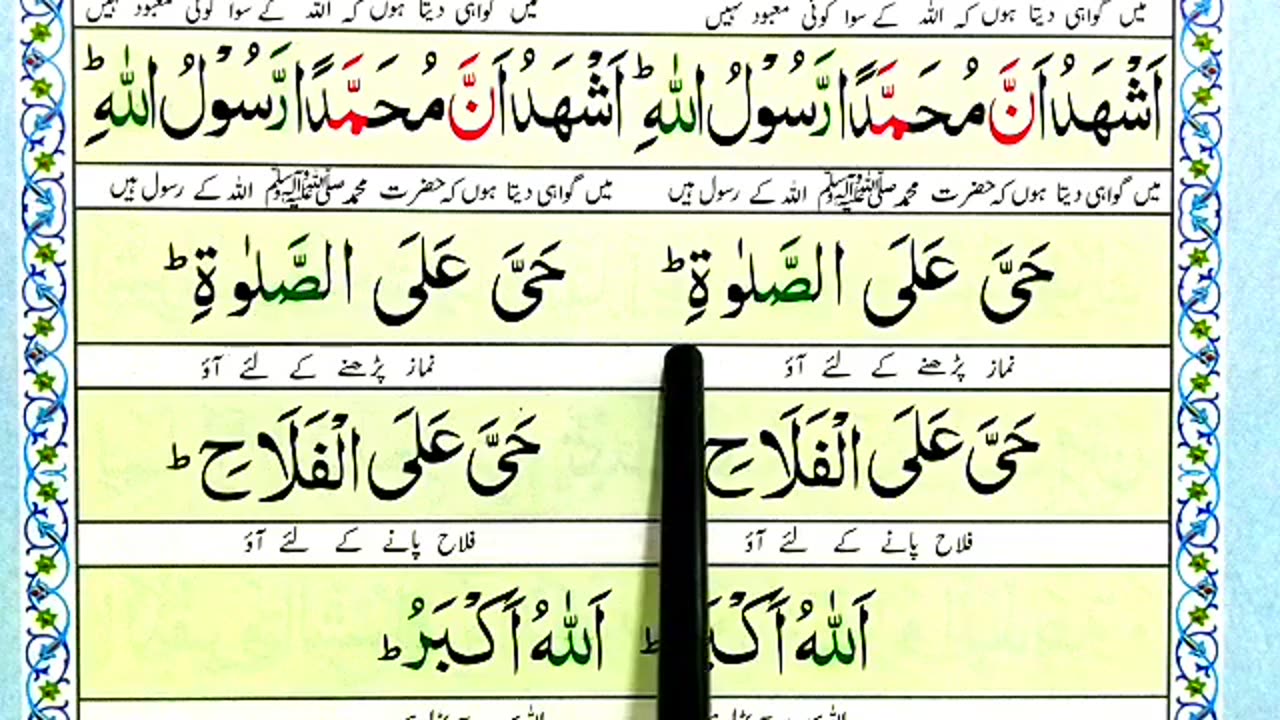 میں گواہی دیتا ہوں کہ اللہ کے سوا کوئی معبود نہیں میں گواہی دیتا ہوں کہ اللہ کے سوا کوئی معبود نہیں
اَشْهَدُ اَنَّ مُحَمَّدًا رَّسُوْلُ اللّٰهِ ؕ اَشْهَدُ اَنَّ مُحَمَّدًا رَّسُوْلُ اللّٰهِ ؕ
میں گواہی دیتا ہوں کہ حضرت محمد ﷺ اللہ کے رسول ہیں میں گواہی دیتا ہوں کہ حضرت محمد ﷺ اللہ کے رسول ہیں
حَیَّ عَلَی الصَّلٰوةِ ؕ حَیَّ عَلَی الصَّلٰوةِ ؕ
نماز پڑھنے کے لئے آؤ نماز پڑھنے کے لئے آؤ
حَیَّ عَلَی الْفَلَاحِ حَیَّ عَلَی الْفَلَاحِ ؕ
فلاح پانے کے لئے آؤ فلاح پانے کے لئے آؤ
اَللّٰهُ اَكْبَرُ ؕ اَللّٰهُ اَكْبَرُ ؕ